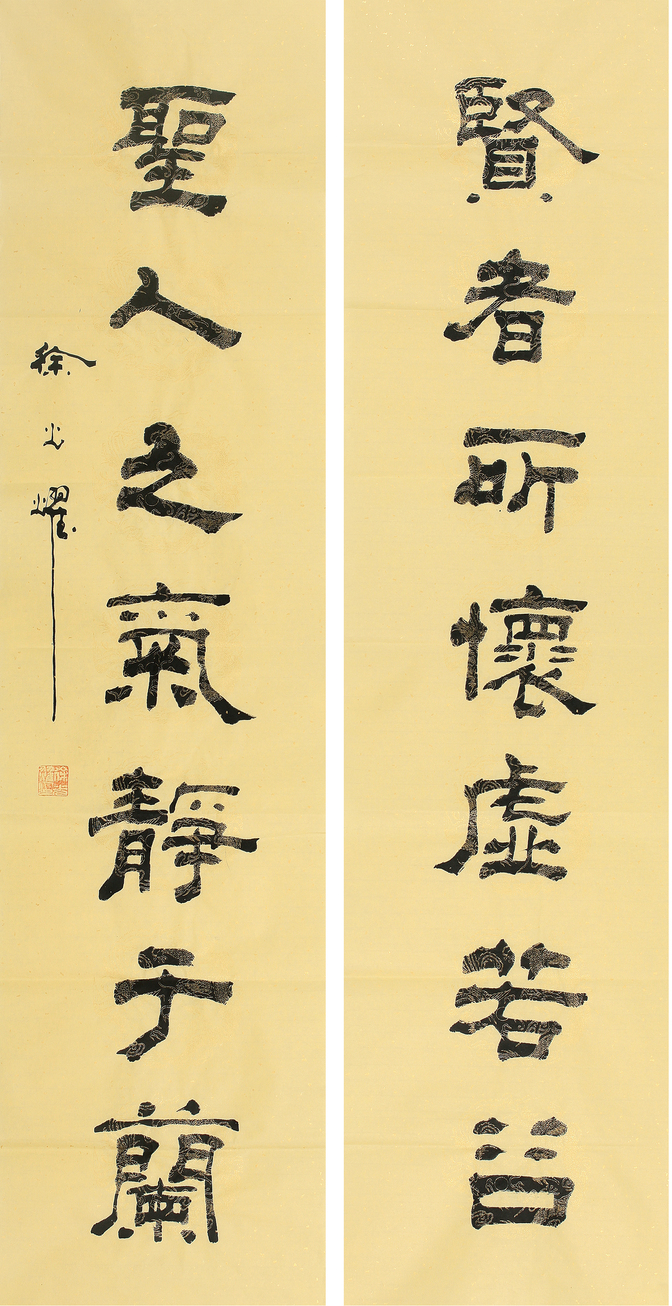 賢者所懷虛若谷
聖人之氣靜于蘭
徐光燿